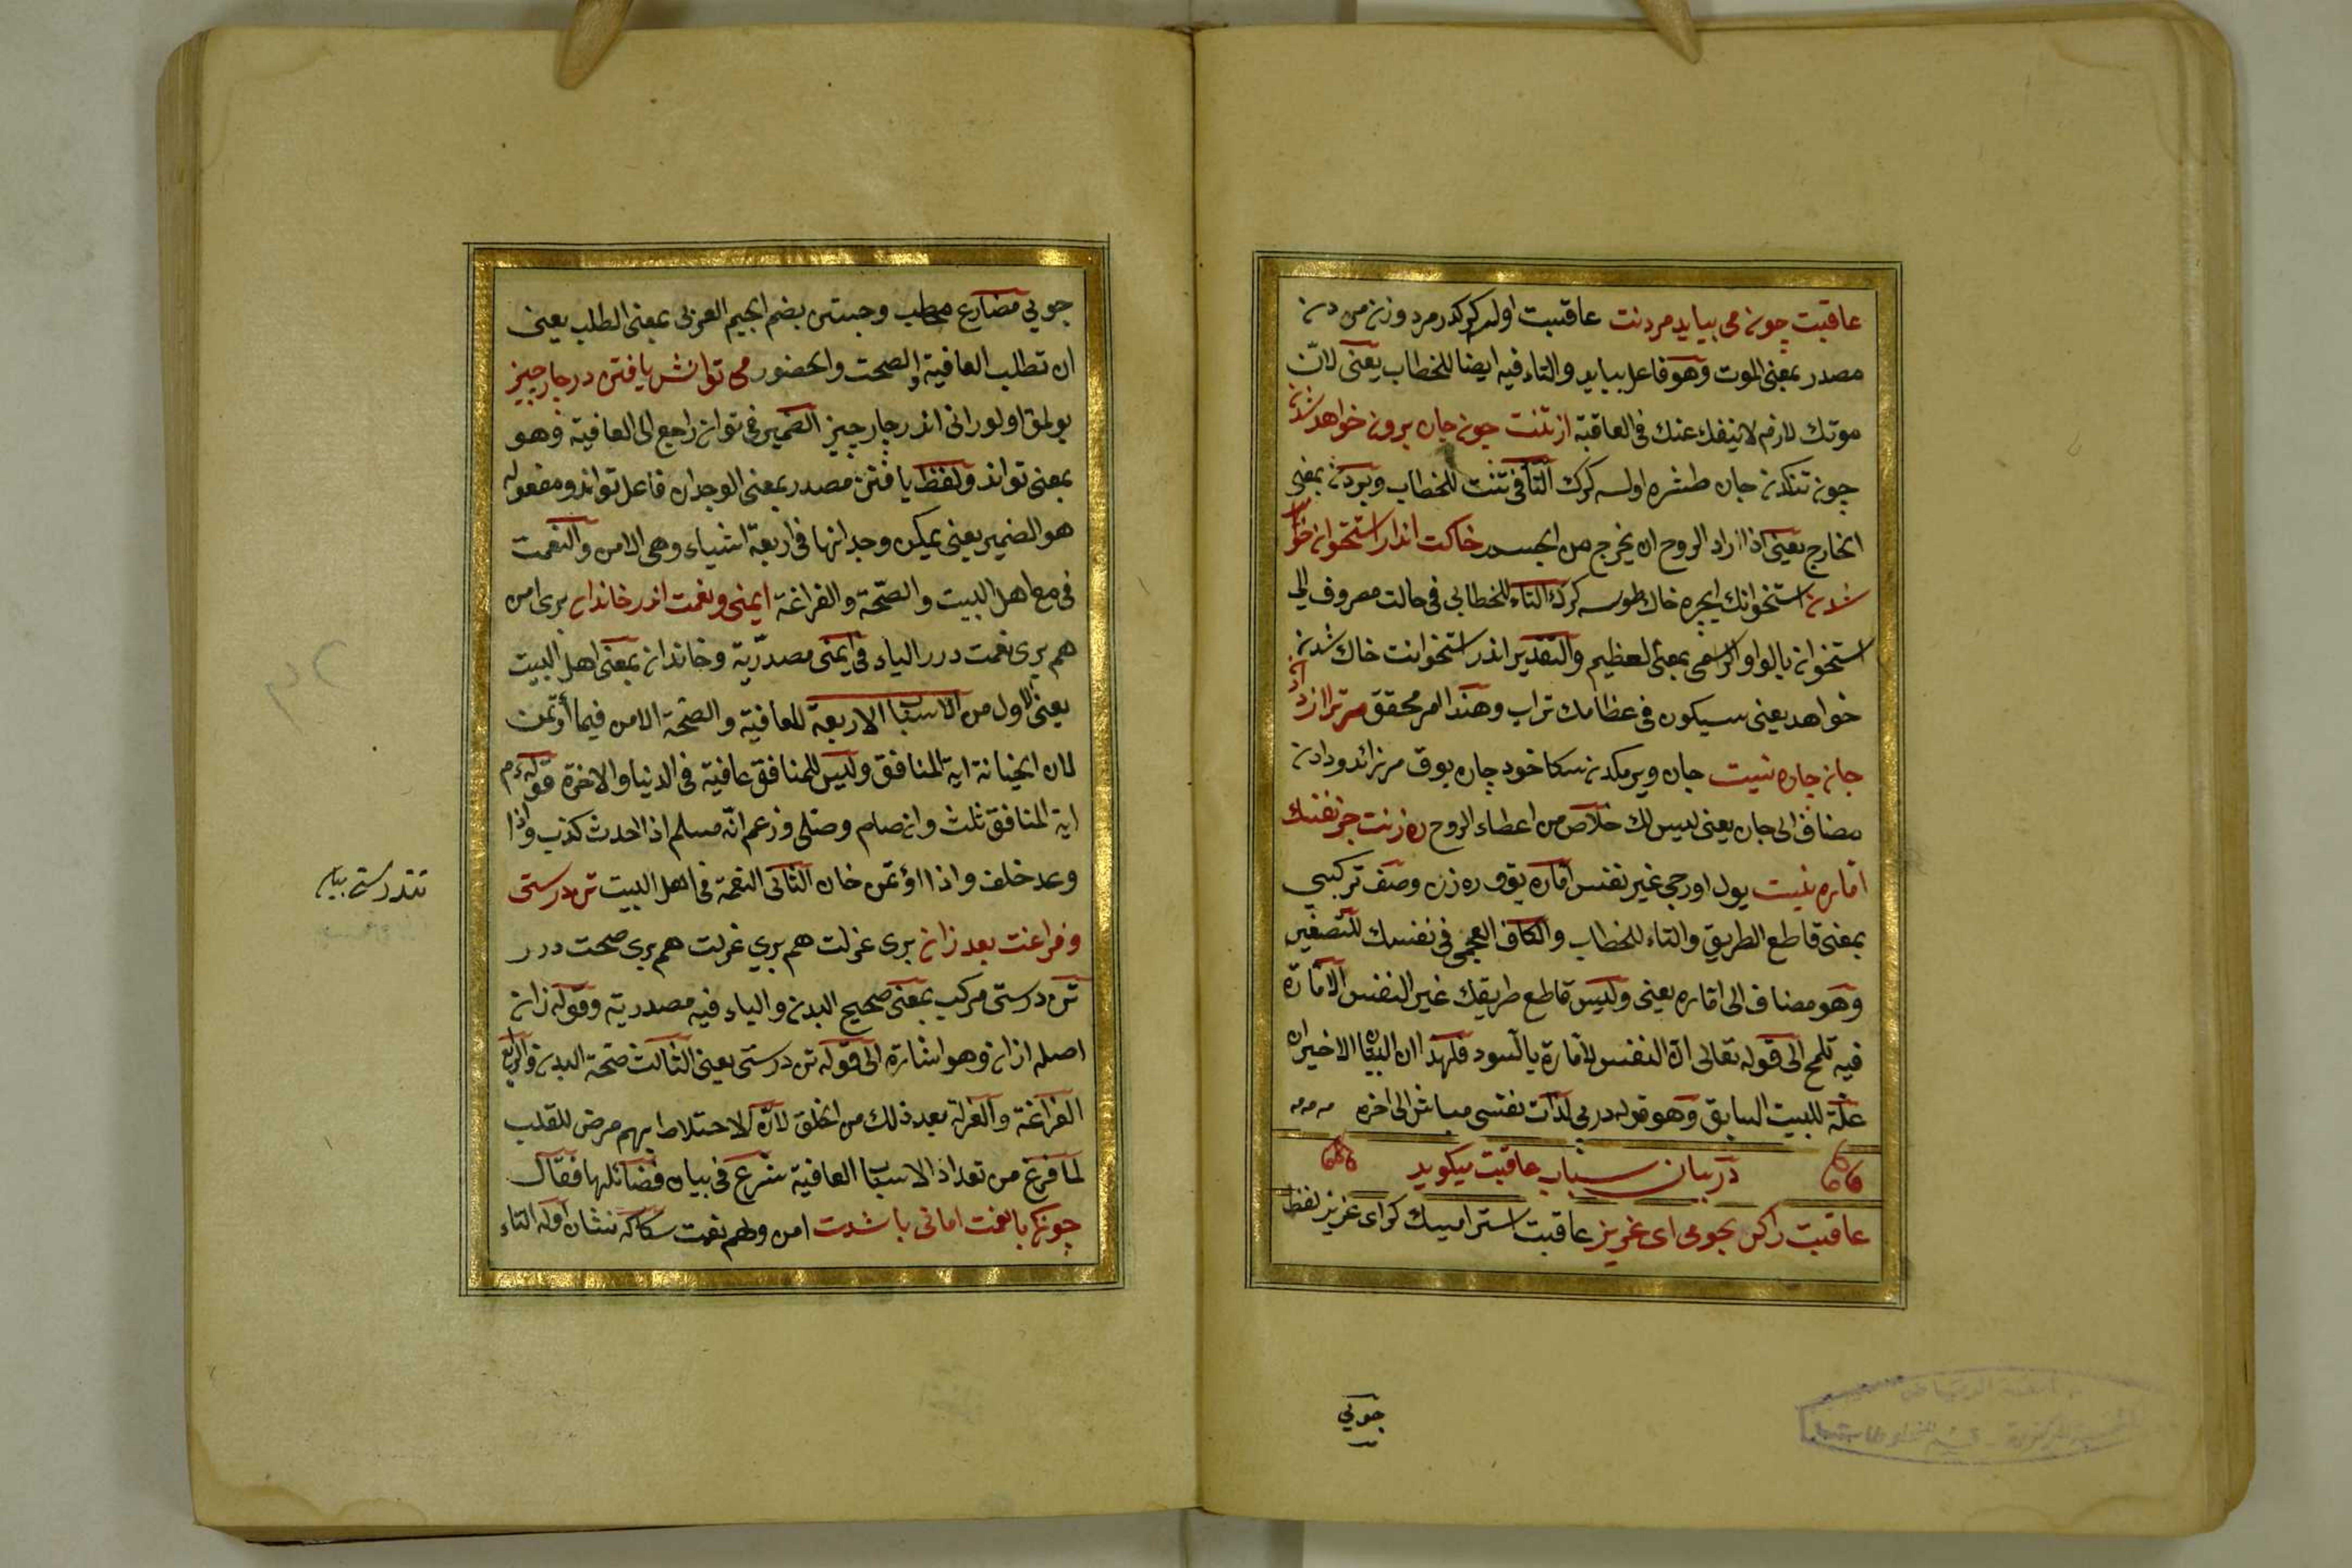 عاقبت چونه می بیاید مردنت عاقبت اولم كرکدر مردونه من دنه
مصدر بمعنی الموت وهو فاعل بیاید والتاء فیه ایضا للخطاب یعنی لانّ
موتك لازم لاینفك عنك فی العاقبة از تنت چونه جان برونه خواهد شدنه
چونه تنكدنه جان طشره اولسه كرك التاء فی تنت للخطاب وبردنه بمعنی
الخارج یعنی اذا اراد الروح ان یخرج من الجسد خاكت اندر استخوانه خواهد
شدنه استخوانك ایچره خاك طولسه كرك التاء للخطاب فی خاكت مصروف الی
استخوانه بالواو الرسمی بمعنی العظیم والتقدیر اندر استخوانت خاك شدنه
خواهد یعنی سیكون فی عظامك تراب وهذا امر محقق مر ترا از داد
جانه چاره نیست جان ویرمكدنه سكا خود چاره یوق مر زائد ودادنه
مضاف الی جان یعنی لیس لك خلاص من اعطاء الروح ره زنت جز نفسك
اماره نیست یول اوریجی غیر نفس اماره یوق ره زن وصف تركیبی
بمعنی قاطع الطریق والتاء للخطاب والكاف العجمی فی نفسك للتصغیر
وهو مضاف الی اماره یعنی ولیس قاطع طریقك غیر النفس الامّارة
فیه تلمح الی قوله تعالی انّ النفس لامّارة بالسوء فلهذا ان البیتان الاخیران
علّة للبیت السابق وهو قوله در پی لذات نفسی مباش الی اخره
در بیان سبب عاقبت میكوید
عاقبت راكر بجویی ای عزیز عاقبت استرامیسك كر ای عزیز لفظ
جویی
جویی مضارع مخاطب وجستن بضم الجیم العربی بمعنی الطلب یعنی
ان تطلب العافیة والصحت والحضور می توانش یافتن در چار چیز
بولمق اولور انی اندر چار چیز الضمیر فی توانش راجع الی العافیة وهو
بمعنی تواند ولفظ یافتن مصدر بمعنی الوجدان فاعل تواند ومفعوله
هو الضمیر یعنی یمكن وجدانها فی اربعة اشیاء وهی الامن والنعمت
فی مع اهل البیت والصّحة والفراغة ایمنی ونعمت اندر خاندان بری امن
هم بری نعمت در الیاء فی ایمنی مصدریّة وخاندانه بمعنی اهل البیت
یعنی الاول من الاسباب الاربعة للعافیة والصّحة الامن فیما أوتمن
لان الخیانة ایة المنافق ولیس للمنافق عافیة فی الدنیا والاخرة قوله ءم
ایة المنافق ثلث وانه صام وصلی وزعم انّه مسلم اذا حدث كذب واذا
وعد خلف واذا اؤتمن خان الثانی النعمة فی اهل البیت تن درستی
وفراغت بعد زانه بری عزلت هم بری عزلت هم بری صحت در
تن درستی مركب بمعنی صحیح البدنه والیاء فیه مصدریة وقوله زانه
اصله از انه وهو اشارة الی قوله تن درستی یعنی الثالث صّحة البدنه والرابع
الفراغة والعزلة بعد ذلك من الخلق لانّ الاختلاط بهم مرض للقلب
لما فرغ من تعداد الاسباب العافیة شرع فی بیان فضائلها فقال
چونكه با نعمت امانی باشدت امن وهم نعمت سكا كه نشان اوله التاء
تندرستی بیان